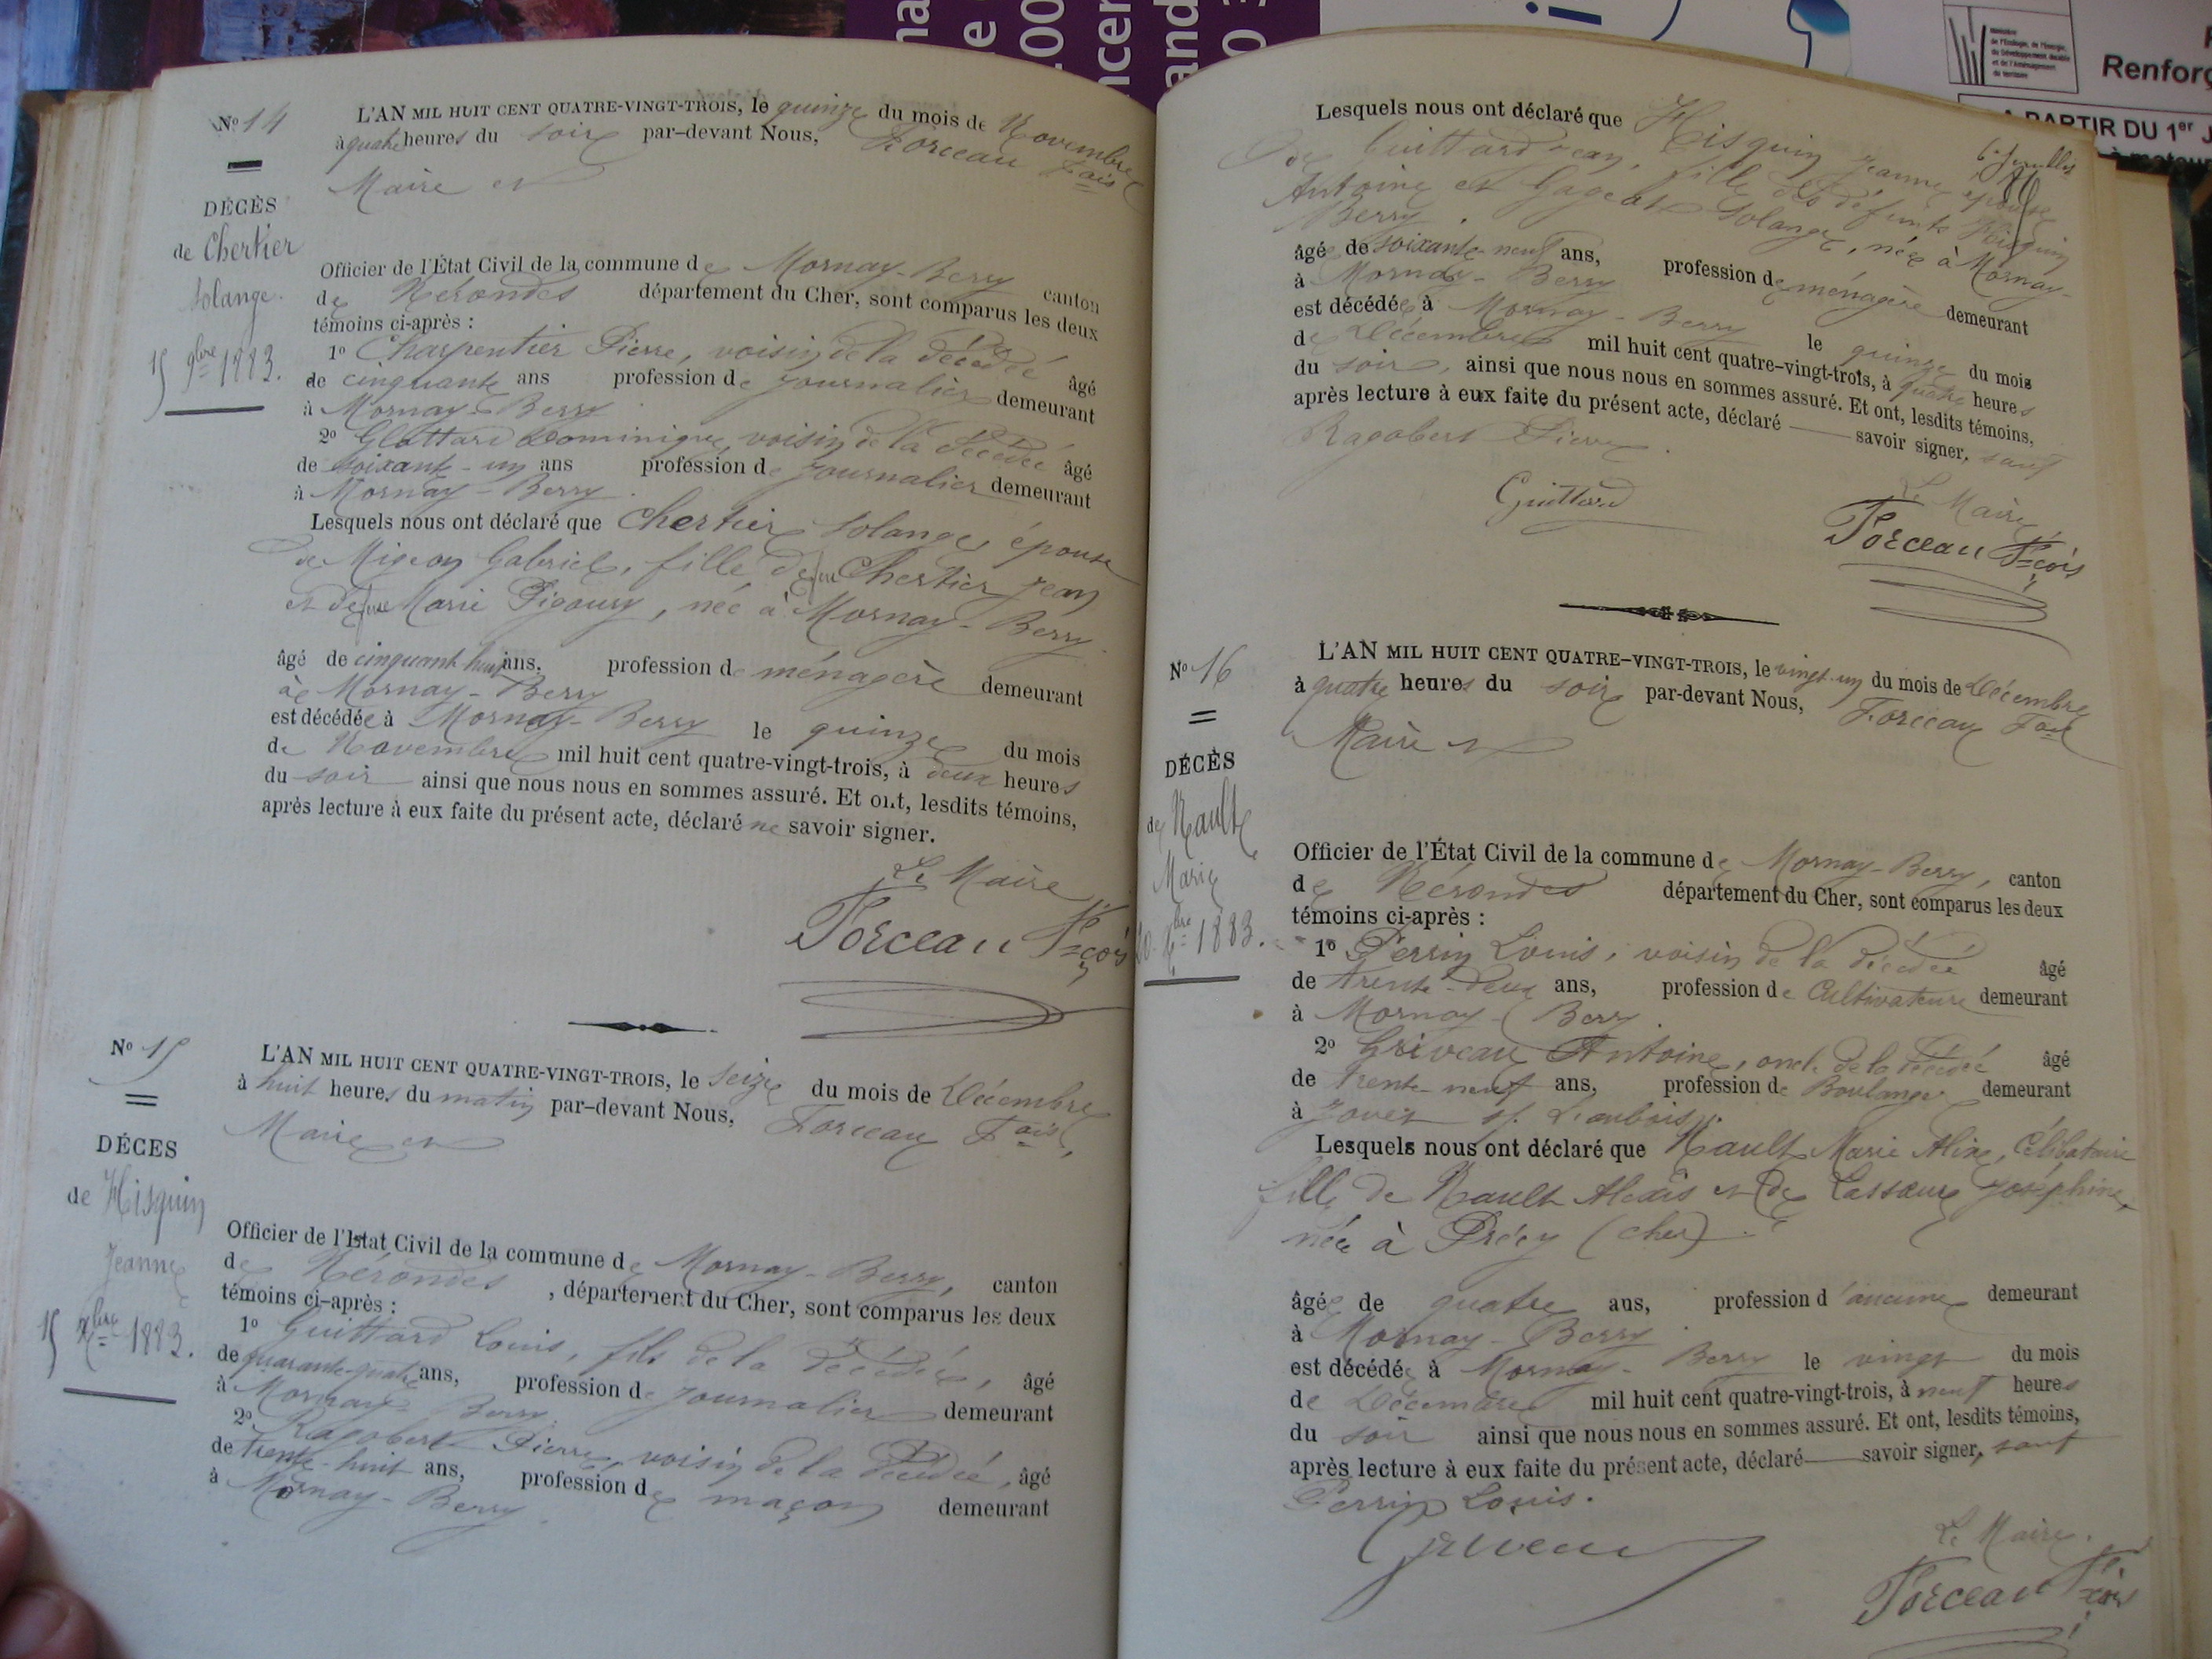 Nº 14
DÉCÈS
de Chertier
Solange.
15 9bre 1883.
L'AN MIL HUIT CENT QUATRE-VINGT-TROIS, le quinze du mois de Novembre
à quatre heures du soir par-devant Nous, Forceau Fois
Maire et
Officier de l'État Civil de la commune de Mornay-Berry canton
de Nérondes département du Cher, sont comparus les deux
témoins ci-après :
1º Charpentier Pierre, voisin de la décédée âgé
de cinquante ans profession de journalier demeurant
à Mornay-Berry
2º Glattard Dominique, voisin de la décédée âgé
de soixante-un ans profession de journalier demeurant
à Mornay-Berry.
Lesquels nous ont déclaré que Chertier Solange, épouse
de Migeon Gabriel, fille de feu Chertier Jean
et de feue Marie Pigoury, née à Mornay-Berry.
âgé de cinquant huit ans, profession de ménagère demeurant
à Mornay-Berry
est décédée à Mornay-Berry le quinze du mois
de Novembre mil huit cent quatre-vingt-trois, à deux heures
du soir ainsi que nous nous en sommes assuré. Et ont, lesdits témoins,
après lecture à eux faite du présent acte, déclaré ne savoir signer.
Le Maire
Forceau Fçois
Nº 15
DÉCES
de Hisquin
Jeanne
15 Xbre 1883.
L'AN MIL HUIT CENT QUATRE-VINGT-TROIS, le seize du mois de Décembre
à huit heures du matin par-devant Nous, Forceau Fois,
Maire et
Officier de l'Etat Civil de la commune de Mornay-Berry, canton
de Nérondes, département du Cher, sont comparus les deux
témoins ci-après :
1º Guittard Louis, fils de la décédée, âgé
de quarante-quatre ans, profession de journalier demeurant
à Mornay-Berry.
2º Ragobert Pierre, voisin de la décédée, âgé
de trente-huit ans, profession de maçon demeurant
à Mornay-Berry.
Lesquels nous ont déclaré que Hisquin Jeanne épouse
de Guittard Jean, fille des défunts Hisquin
Antoine et Gageat Solange, née à Mornay-
Berry.
âgé de soixante-neuf ans, profession de ménagère demeurant
à Mornay-Berry
est décédée à Mornay-Berry le quinze du mois
de Décembre mil huit cent quatre-vingt-trois, à quatre heures
du soir, ainsi que nous nous en sommes assuré. Et ont, lesdits témoins,
après lecture à eux faite du présent acte, déclaré savoir signer, sauf
Ragobert Pierre.
Guittard
Le Maire
Forceau Fçois
Nº 16
DÉCÈS
de Rault
Marie
20 Xbre 1883.
L'AN MIL HUIT CENT QUATRE-VINGT-TROIS, le vingt-un du mois de Décembre
à quatre heures du soir par-devant Nous, Forceau Fois
Maire et
Officier de l'État Civil de la commune de Mornay-Berry, canton
de Nérondes département du Cher, sont comparus les deux
témoins ci-après :
1º Perrin Louis, voisin de la décédée âgé
de trente-deux ans, profession de Cultivateur demeurant
à Mornay-Berry.
2º Griveau Antoine, oncle de la décédée âgé
de trente-neuf ans, profession de Boulanger demeurant
à Jouet s/. L'aubois.
Lesquels nous ont déclaré que Rault Marie Alixe, Célibataire
fille de Rault Alexis et de Lassœur Joséphine,
née à Précy (Cher).
âgée de quatre ans, profession d'aucune demeurant
à Mornay-Berry.
est décédée à Mornay-Berry le vingt du mois
de Décembre mil huit cent quatre-vingt-trois, à neuf heures
du soir ainsi que nous nous en sommes assuré. Et ont, lesdits témoins,
après lecture à eux faite du présent acte, déclaré savoir signer, sauf
Perrin Louis.
Griveau
Le Maire.
Forceau Fçois
Ministère
de l'Écologie, de l'Énergie,
du Développement durable
et de l'Aménagement
du territoire
Renforç
A PARTIR DU 1er J